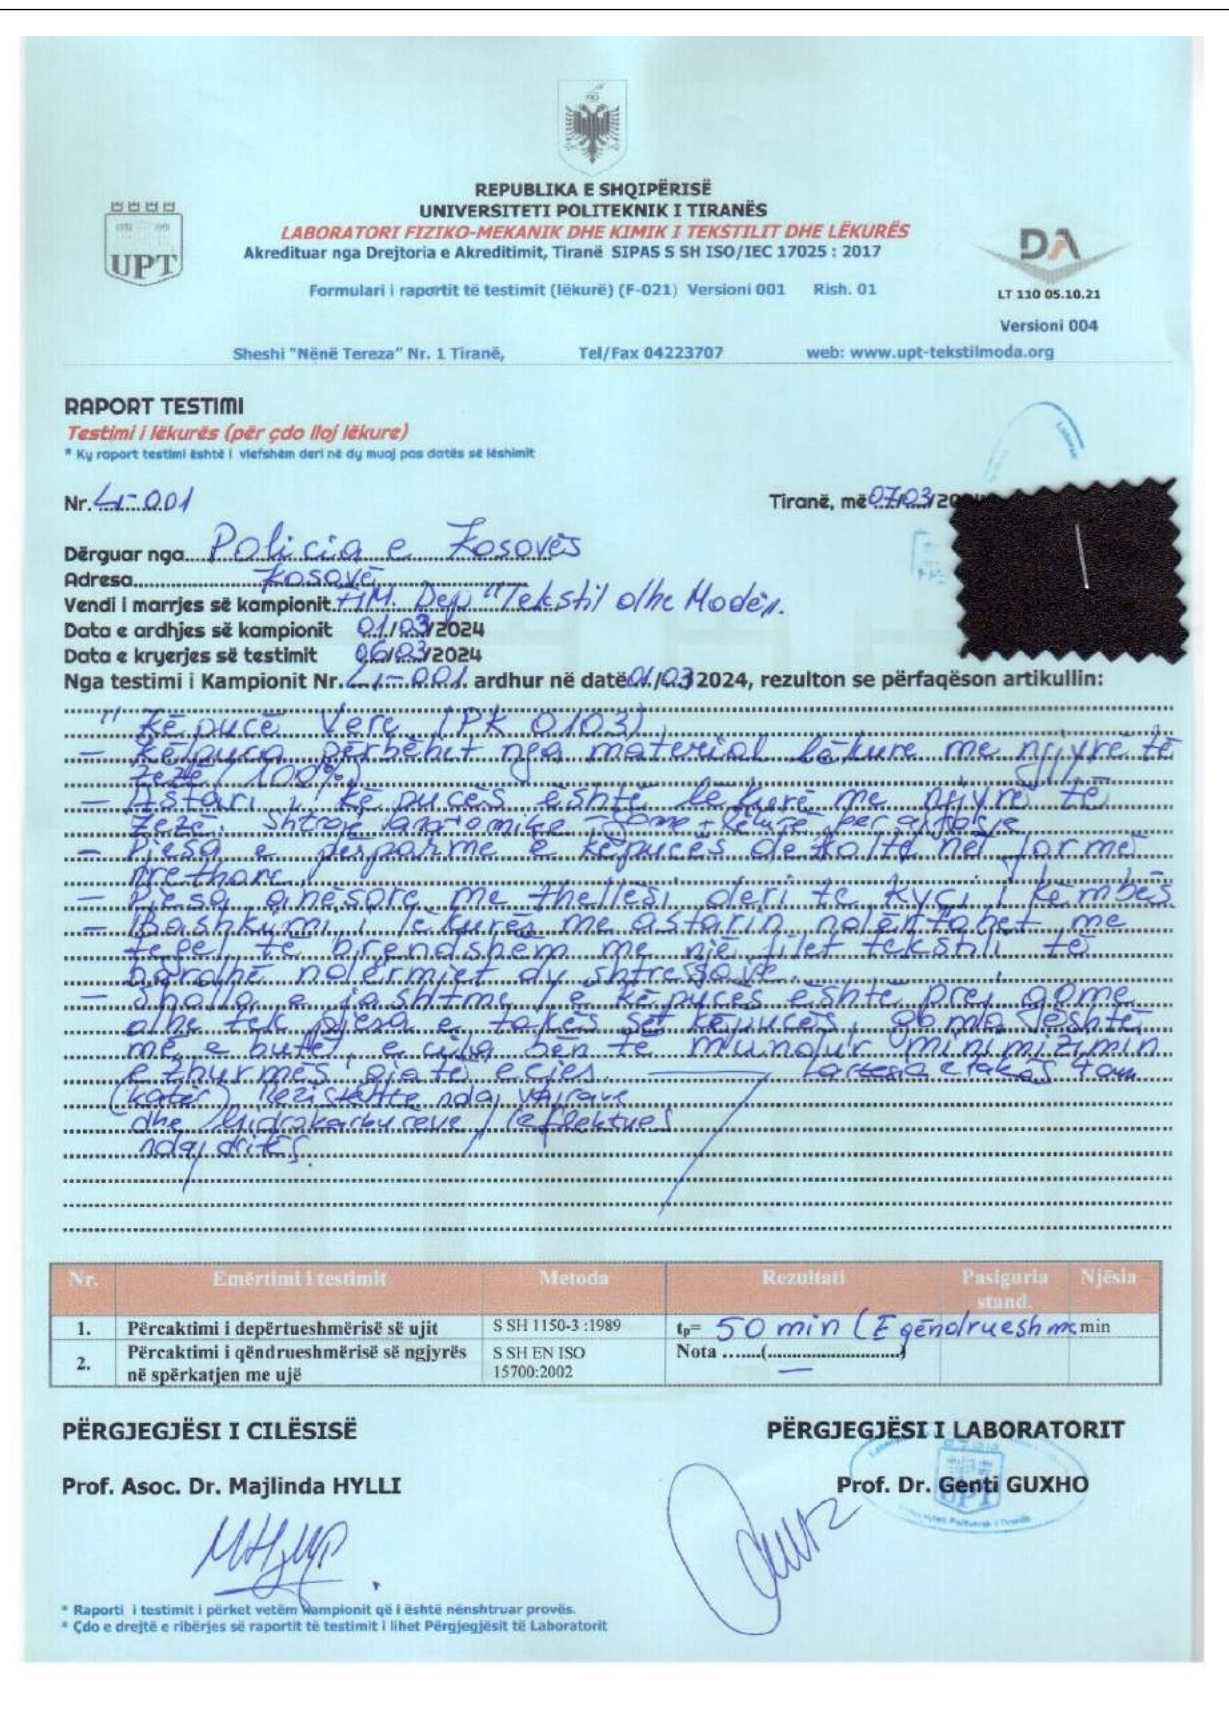 REPUBLIKA E SHQIPËRISË
UNIVERSITETI POLITEKNIK I TIRANËS
LABORATORI FIZIKO-MEKANIK DHE KIMIK I TEKSTILIT DHE LËKURËS
Akredituar nga Drejtoria e Akreditimit, Tiranë SIPAS S SH ISO/IEC 17025 : 2017
UPT
DA
Formulari i raportit të testimit (lëkurë) (F-021) Versioni 001 Rish. 01
LT 110 05.10.21
Versioni 004
Sheshi "Nënë Tereza" Nr. 1 Tiranë, Tel/Fax 04223707 web: www.upt-tekstilmoda.org
RAPORT TESTIMI
Testimi i lëkurës (për çdo lloj lëkure)
* Ky raport testimi është i vlefshëm deri në dy muaj pas datës së lëshimit
Nr. L-001 Tiranë, më 07/03/20
Dërguar nga Policia e Kosovës
Adresa Kosovë
Vendi i marrjes së kampionit FIM. Dep "Tekstil dhe Modës.
Data e ardhjes së kampionit 01/03/2024
Data e kryerjes së testimit 06/03/2024
Nga testimi i Kampionit Nr. L-001 ardhur në datë 01/03 2024, rezulton se përfaqëson artikullin:
" Këpucë Vere (PK 0103)
- Këpuca përbëhet nga material lëkure me ngjyrë të
zezë (100%)
- Astari i këpucës është lëkurë me ngjyrë të
zezë. Shtroje anatomike
- Pjesa e përparme e këpucës dekolte në formë
rrethore
- Pjesa anësore me thellësi deri te kyçi i këmbës
- Bashkimi i lëkurës me astarin ndërtohet me
tegel të brendshëm me një filet tekstili të
bardhë ndërmjet dy shtresave.
- Sholla e jashtme e këpucës është prej gome
dhe tek pjesa e takës së këpucës, goma është
më e butë, e cila bën të mundur minimizimin
e zhurmës gjatë ecjes. Lartësia e takës 4 cm
(katër) Rezistente ndaj vajrave
dhe hidrokarbureve, reflektues
ndaj dritës.
Nr. Emërtimi i testimit Metoda Rezultati Pasiguria stand. Njësia
1. Përcaktimi i depërtueshmërisë së ujit S SH 1150-3 :1989 tp= 50 min (E qëndrueshme min
2. Përcaktimi i qëndrueshmërisë së ngjyrës S SH EN ISO Nota ......(..............................)
në spërkatjen me ujë 15700:2002 —
PËRGJEGJËSI I CILËSISË PËRGJEGJËSI I LABORATORIT
Prof. Asoc. Dr. Majlinda HYLLI Prof. Dr. Genti GUXHO
UPT
* Raporti i testimit i përket vetëm kampionit që i është nënshtruar provës.
* Çdo e drejtë e ribërjes së raportit të testimit i lihet Përgjegjësit të Laboratorit